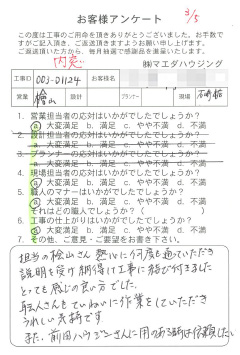 お客様アンケート
3/5
この度は工事のご用命を頂きありがとうございました。お手数で
すがご記入頂き、ご返送頂きますようお願い申し上げます。
ご返送頂いた方から、毎月抽選で感謝品を進呈いたします。
内窓
㈱マエダハウジング
工事ID 003-01124 お客様名
営業 檜山 設計 プランナー 現場
1. 営業担当者の応対はいかがでしたでしょうか?
a 大変満足 b. 満足 c. やや不満 d. 不満
2. 設計担当者の応対はいかがでしたでしょうか?
a. 大変満足 b. 満足 c. やや不満 d. 不満
3. プランナーの応対はいかがでしたでしょうか?
a. 大変満足 b. 満足 c. やや不満 d. 不満
4. 現場担当者の応対はいかがでしたでしょうか?
a 大変満足 b. 満足 c. やや不満 d. 不満
5. 職人のマナーはいかがでしたでしょうか?
a 大変満足 b. 満足 c. やや不満 d. 不満
それはどの職人でしょうか?( )
6. 工事の仕上がりはいかがでしたでしょうか?
a 大変満足 b. 満足 c. やや不満 d. 不満
7. その他、ご意見・ご要望をお書き下さい。
担当の檜山さん 熱心に何度も通っていただき
説明を受け納得して工事に結び付きました
とっても感じの良い方でした。
職人さんもていねいに作業をしていただき
うれしい気持です
また、前田ハウジングさんに用のある時は依頼したい